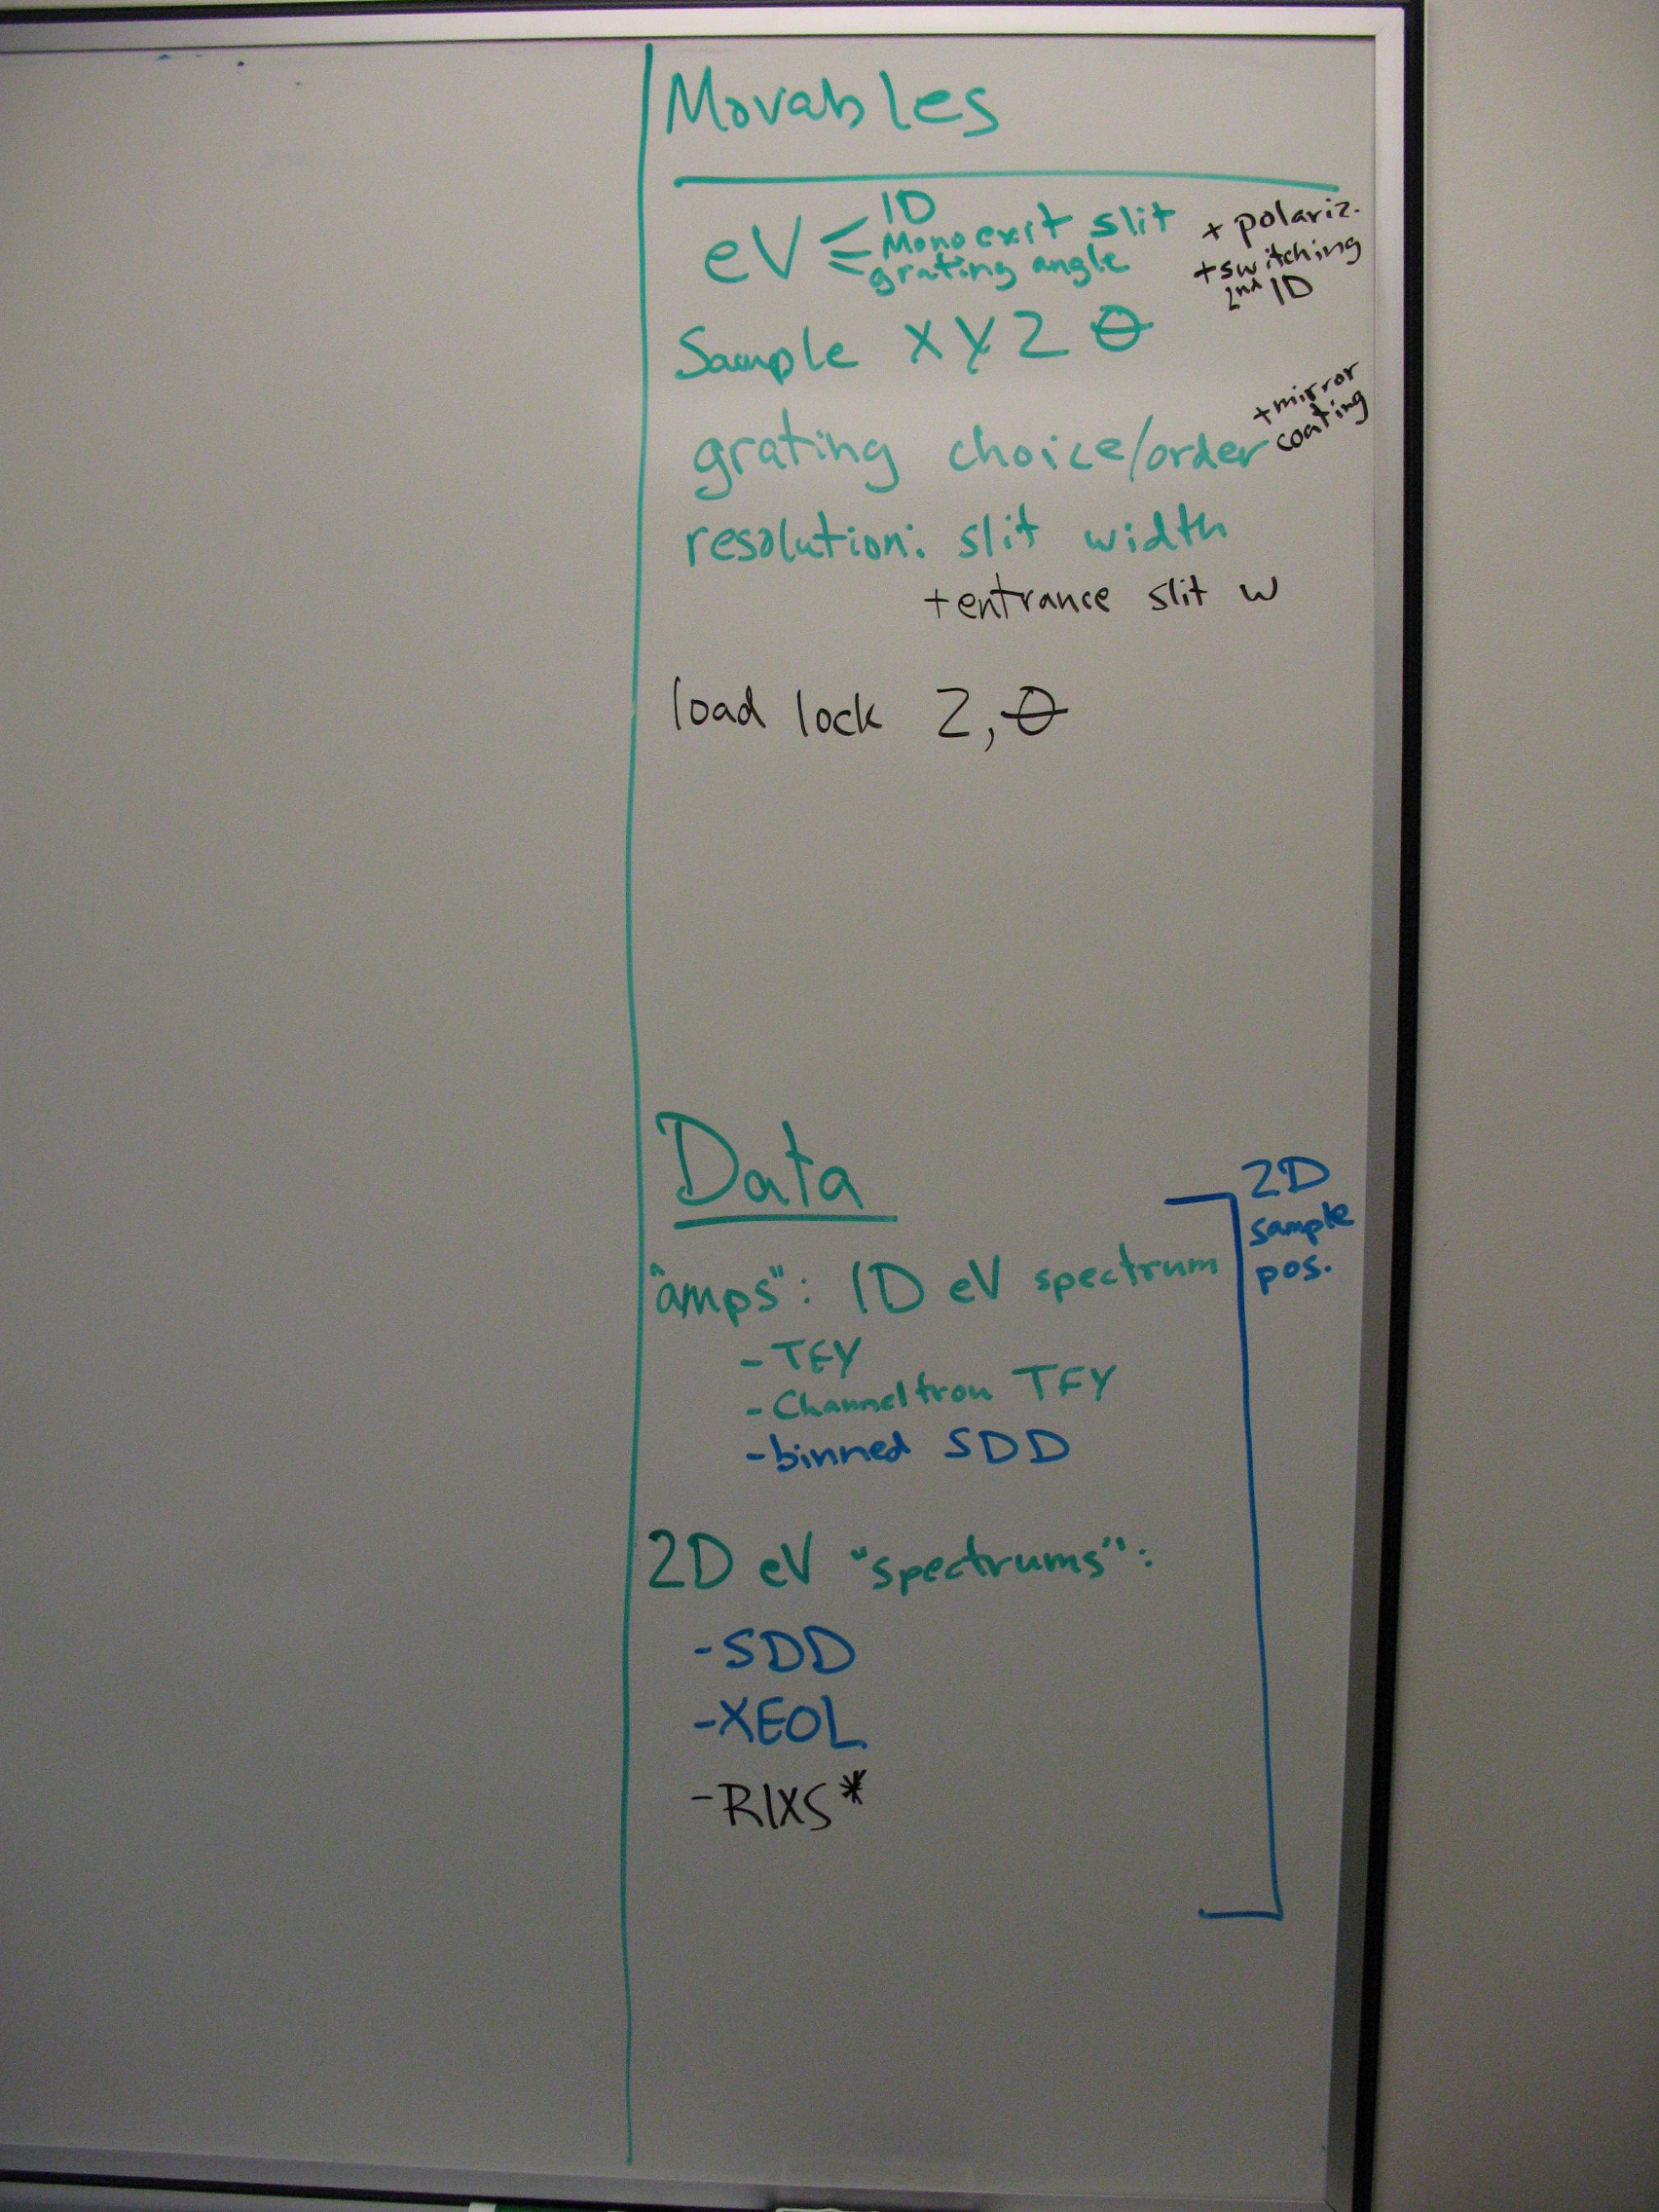 Movables
ID
eV Mono exit slit
grating angle
+ polariz.
+ switching
2nd ID
Sample X Y Z θ
grating choice/order
+ mirror
coating
resolution: slit width
+ entrance slit w
load lock Z, θ
Data
2D
sample
pos.
"amps": 1D eV spectrum
- TEY
- Channeltron TFY
- binned SDD
2D eV "spectrums":
- SDD
- XEOL
- RIXS*